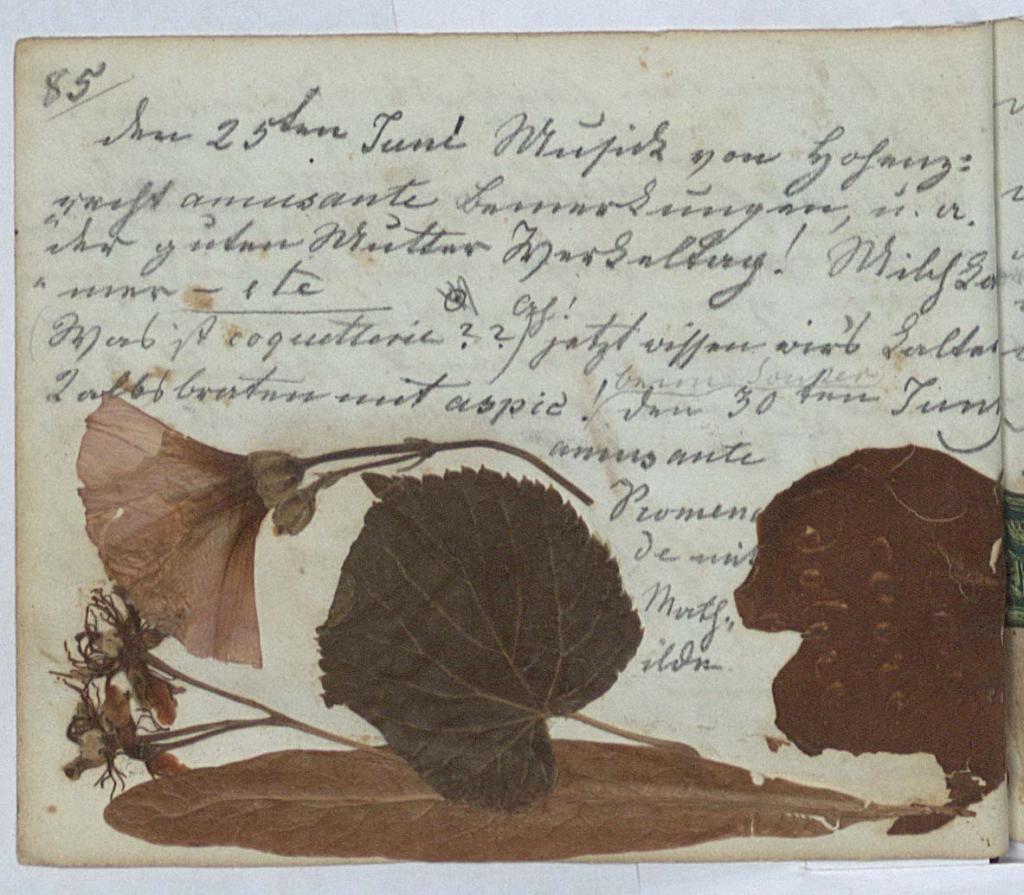 85
den 25ten Juni Musick von Hohenz:
recht amusante Bemerkungen, u. a.
"der guten Mutter Werkeltag! Milchka
" mer – etc
Ach!
(Was ist coquetterie??) jetzt wissen wir's kalter
beim Souper
Kalbsbraten mit aspic! den 30ten Juni
amusante
Promena
de mit
Math,
ilde